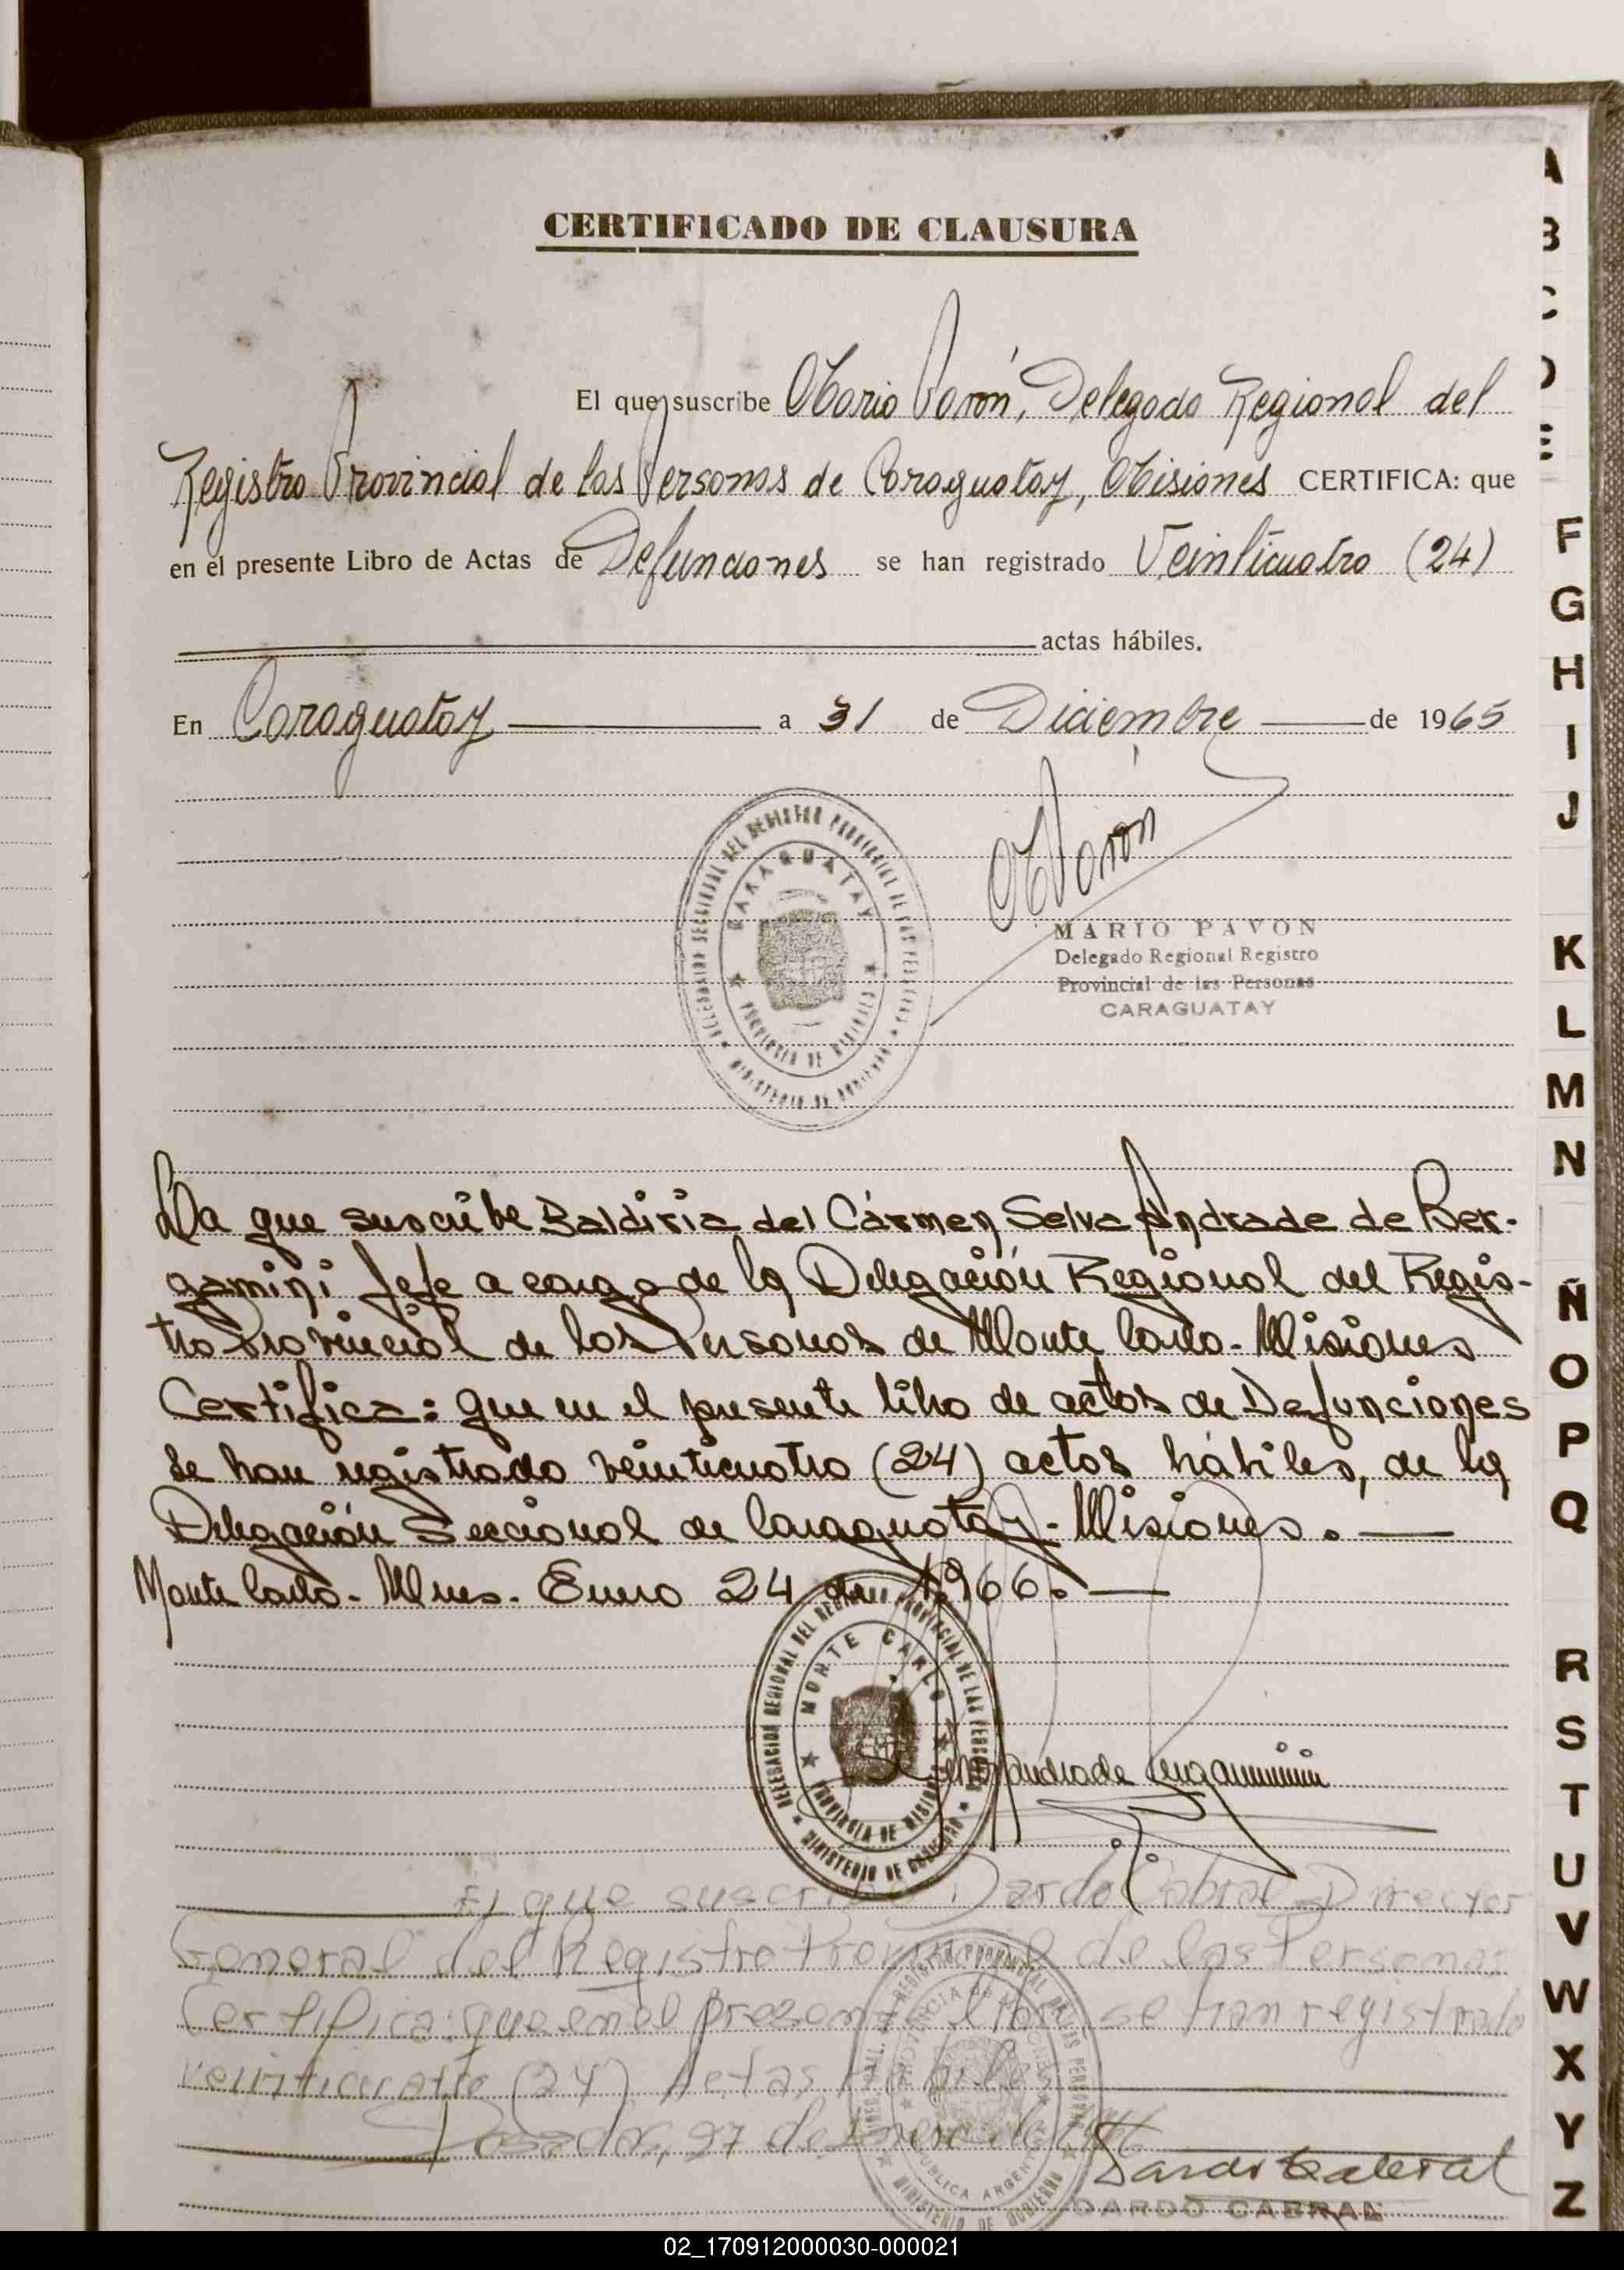 CERTIFICADO DE CLAUSURA
El que suscribe Mario Pavón, Delegado Regional del
Registro Provincial de las Personas de Caraguatay, Misiones CERTIFICA: que
en el presente Libro de Actas de Defunciones se han registrado Veinticuatro (24)
actas hábiles.
En Caraguatay a 31 de Diciembre de 1965
MPavón
DELEGACION SECCIONAL DEL REGISTRO PROVINCIAL DE LAS PERSONAS
CARAGUATAY
PROVINCIA DE MISIONES
MINISTERIO DE GOBIERNO
MARIO PAVON
Delegado Regional Registro
Provincial de las Personas
CARAGUATAY
La que suscribe Baldiria del Cármen Selva Andrade de Ber-
gamini Jefe a cargo de la Delegación Regional del Regis-
tro Provincial de las Personas de Monte Carlo - Misiones
Certifica: que en el presente libro de actas de Defunciones
se han registrado veinticuatro (24) actas hábiles, de la
Delegación Seccional de Caraguatay - Misiones.
Monte Carlo - Mnes. Enero 24 de 1966.
DELEGACION REGIONAL DEL REGISTRO PROVINCIAL DE LAS PERSONAS
MONTE CARLO
PROVINCIA DE MISIONES
MINISTERIO DE GOBIERNO
Andrade Bergamini
El que suscribe Dardo Cabral Director
General del Registro Provincial de las Personas
Certifica: que en el presente libro se han registrado
veinticuatro (24) Actas hábiles
Posadas, 27 de Enero de 1966
REGISTRO PROVINCIAL DE LAS PERSONAS
PROVINCIA DE MISIONES
REPUBLICA ARGENTINA
MINISTERIO DE GOBIERNO
Dardo Cabral
DARDO CABRAL
A
B
C
D
E
F
G
H
I
J
K
L
M
N
Ñ
O
P
Q
R
S
T
U
V
W
X
Y
Z
02_170912000030-000021